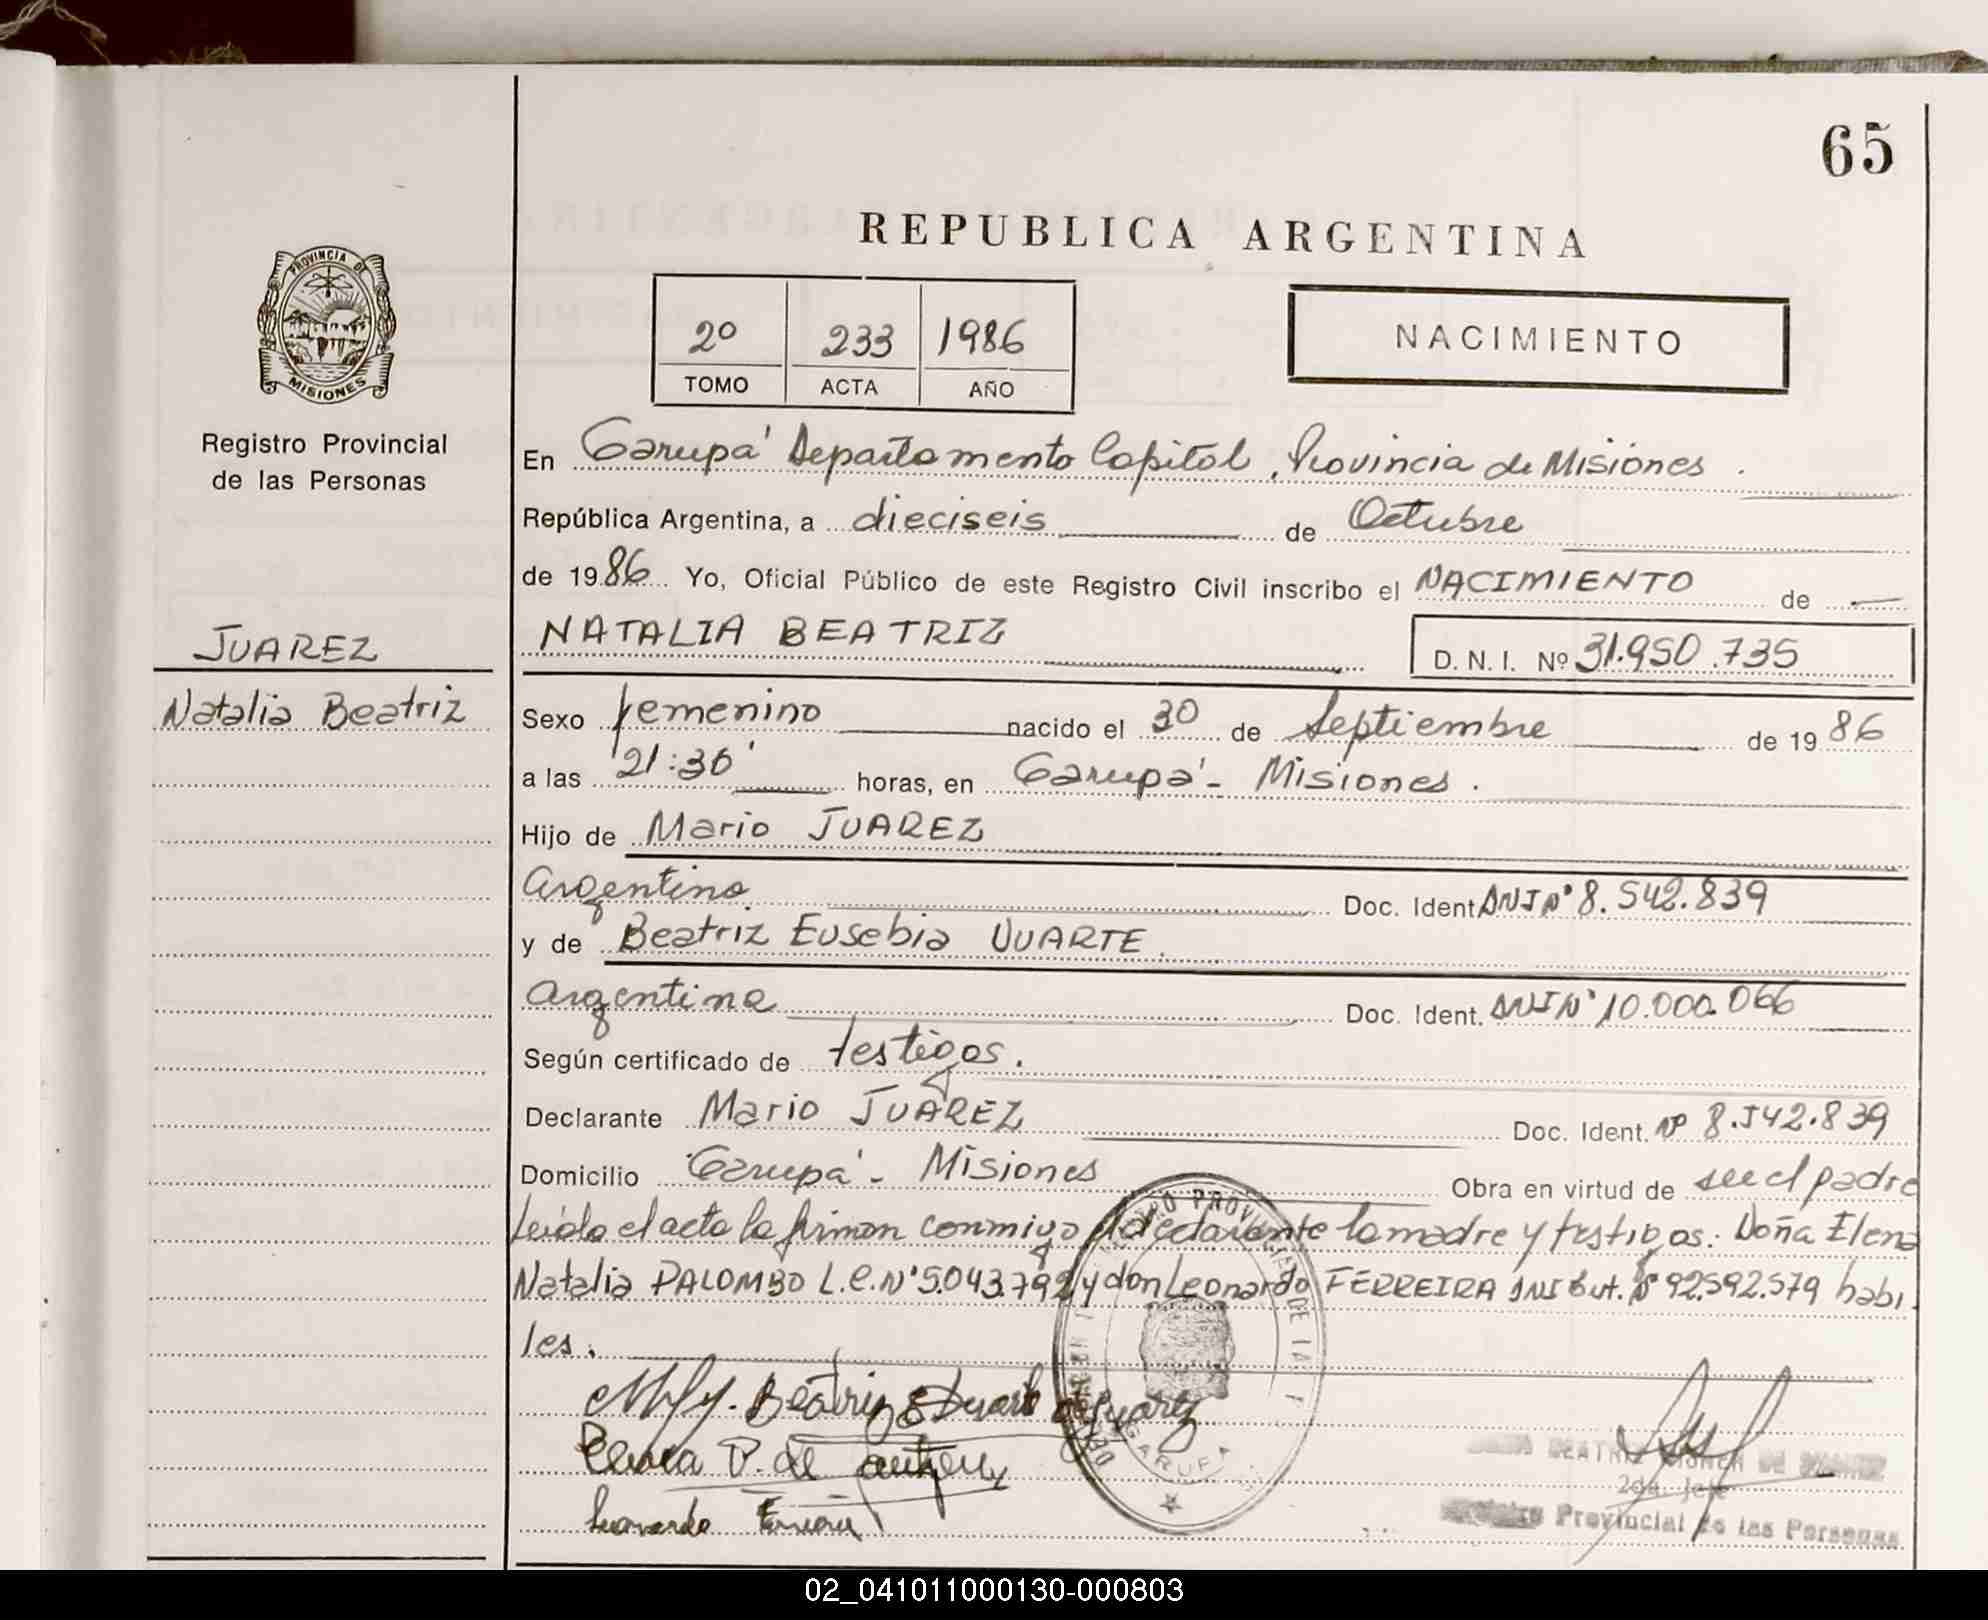 65
REPUBLICA ARGENTINA
PROVINCIA DE
MISIONES
2º 233 1986
TOMO ACTA AÑO
NACIMIENTO
Registro Provincial
de las Personas
En Garupá Departamento Capital, Provincia de Misiones.
República Argentina, a dieciseis de Octubre
de 1986 Yo, Oficial Público de este Registro Civil inscribo el NACIMIENTO de
JUAREZ
NATALIA BEATRIZ
D. N. I. Nº 31.950.735
Natalia Beatriz
Sexo femenino nacido el 30 de Septiembre de 1986
a las 21:30' horas, en Garupá - Misiones.
Hijo de Mario JUAREZ
argentino Doc. Ident. DNI Nº 8.542.839
y de Beatriz Eusebia DUARTE.
argentina Doc. Ident. DNI Nº 10.000.066
Según certificado de testigos.
Declarante Mario JUAREZ Doc. Ident. Nº 8.542.839
Domicilio Garupá - Misiones Obra en virtud de ser el padre
Leída el acta la firman conmigo el declarante la madre y testigos: Doña Elena
Natalia PALOMBO L.C. Nº 5.043.792 y don Leonardo FERREIRA DNI Ext. Nº 92.592.579 habi-
les.
Beatriz E Duarte de Juarez
P. de
Leonardo
GARUPA
BEATRIZ DE
2da. Jefe
Provincial de las Personas
02_041011000130-000803